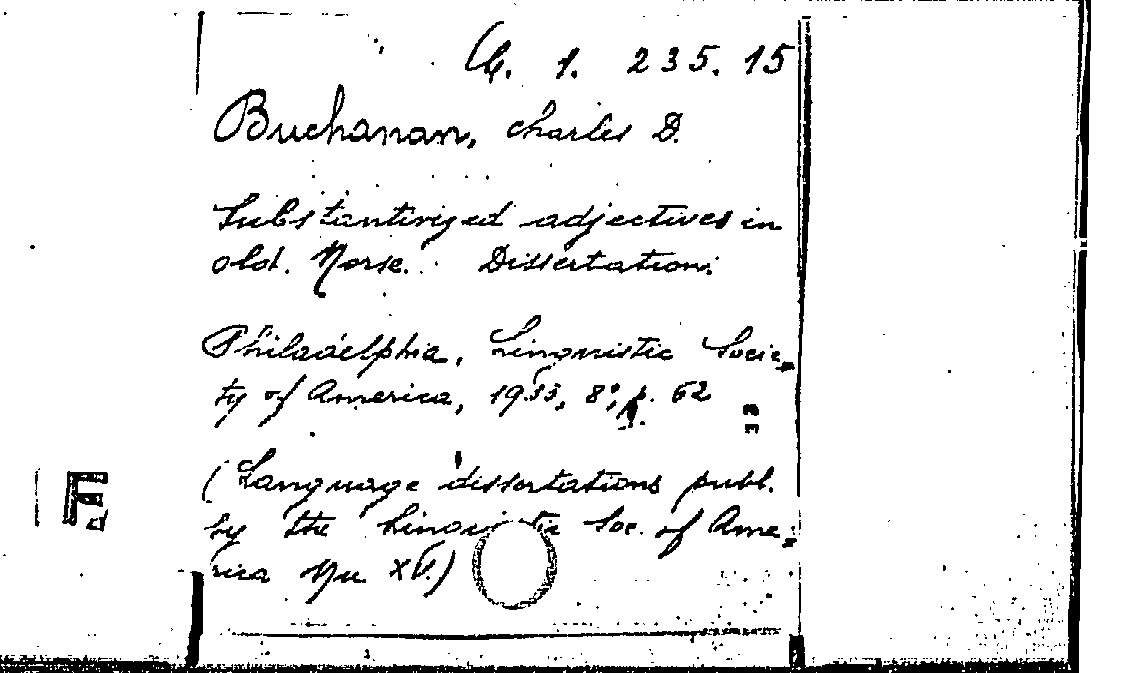 1. 235. 15
Buchanan, Charles D.
Substantivized adjectives in
old. Norse. Dissertation.
Philadelphia, Linguistic Socie-
ty of America, 1933, 8°, p. 62
(Language dissertations publ.
by the Linguistic Soc. of Ame-
rica Nu XV.)